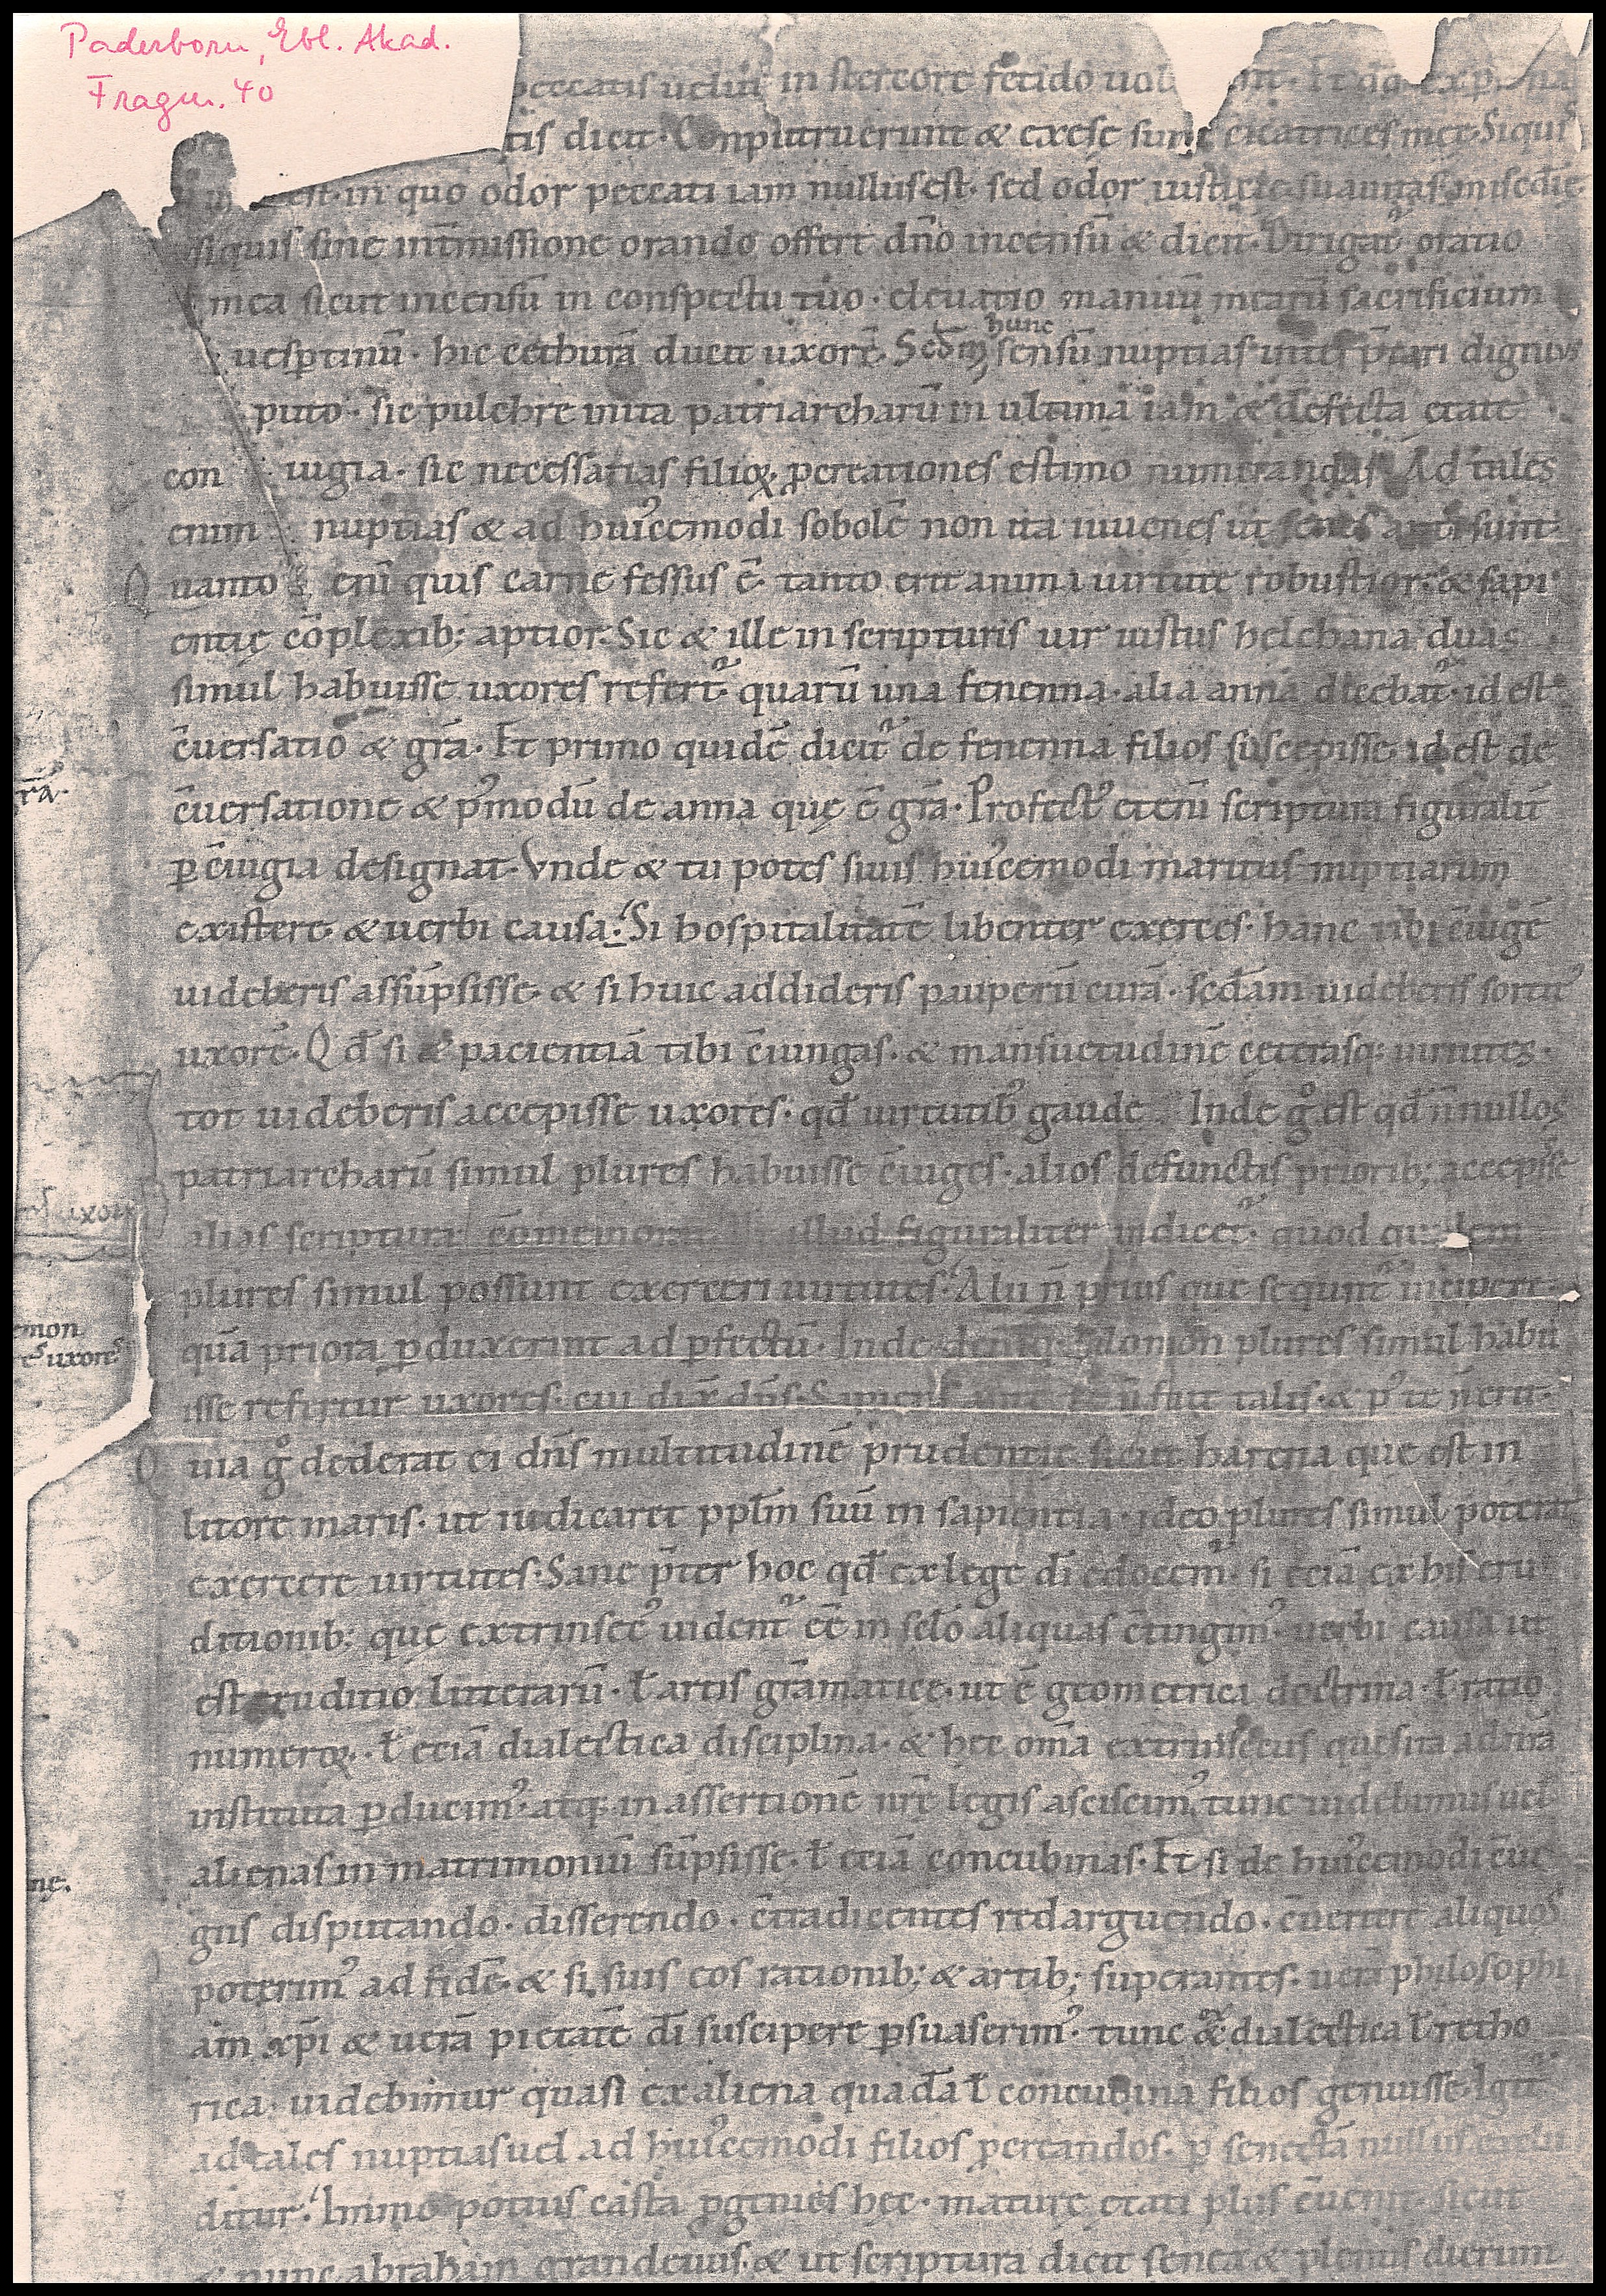 Paderborn, Ebl. Akad.
Fragm. 40
peccatis uelut in stercore fetido uol
tis dicit. Conputruerunt & exesę sunt cicatrices meę. Siquis
est. in quo odor peccati iam nullus est. sed odor iusticię suauitas miscd̄ię
siquis sine int̄missione orando offert dn̄o incensū & dicit. Dirigat᷑ oratio
mea sicut incensū in conspectu tuo. eleuatio manuū mearū sacrificium
uesp̱tinū. hic cethurā ducit uxorē. Scd̄m hunc sensū nuptias int̄p̄tari dignius
puto. sic pulchre inita patriarcharū in ultima iam & defecta etate
con iugia. sic necessarias filioꝝ ꝓcreationes estimo numerandas. Ad tales
enim nuptias & ad hui᾿cemodi sobolē non ita iuuenes ut senes apti sunt
Quanto enī quis carne fessus ē. tanto erit animi uirtute robustior. & sapi
entię cōplexib; aptior. Sic & ille in scripturis uir iustus helchana duas
simul habuisse uxores refert᷑. quarū una fenenna. alia anna dicebat᷑. id est
c̄uersatio & gr̄a. Et primo quidē dicit᷑ de fenenna filios suscepisse. id est de
c̄uersatione & p᾿modū de anna quę ē gr̄a. Profect᾿ etenī scriptura figuralit̄
ꝑ c̄iugia designat. Vnde & tu potes siuis hui᾿cemodi maritus nuptiarum
existere. & uerbi causa. Si hospitalitatē libenter exerces. hanc tibi c̄iugē
uideberis assūpsisse. & si huic addideris pauperū curā. scd̄am uideberis sortit᾿
uxorē. Qd̄ si & pacientiā tibi c̄iungas. & mansuetudinē ceterasq; uirtutes.
tot uideberis accepisse uxores. qd̄ uirtutib᾿ gaude Inde g̊ est qd̄ n̄nullos
patriarcharū simul plures habuisse c̄iuges. alios defunctis priorib; accepisse
alias scriptura cōmemorat illud figuraliter indicet᷑. quod quidem
plures simul possunt exerceri uirtutes. Alii n̄ prius que sequnt᷑ incipere
quā priora ꝑduxerint ad ꝑfectū. Inde deniq; salomon plures simul habu
isse refertur uxores. cui dix̄ dn̄s. Sapiens ante te n̄ fuit talis. & p᾿ te n̄ erit.
Quia g̊ dederat ei dn̄s multitudinē prudentię sicut harena que est in
litore maris. ut iudicaret ppl̄m suū in sapientia. ideo plures simul poterat
exercere uirtutes. Sane p̄ter hoc qd̄ ex lege dī edocem᷑. si eciā ex his eru
ditionib; quę extrinsec᾿ uident᷑ eē in sclo aliquas c̄tingim᾿. uerbi causa ut
est eruditio litterarū. ł artis grāmatice. ut ē geometrica doctrina. ł ratio
numeroꝝ. ł eciā dialectica disciplina. & hec om̄a extrinsecus quesita ad nr̄a
instituta ꝑducim᾿. atq; in assertionē nr̄ę legis asciscim᾿. tunc uidebimus uel
alienas in matrimoniū sūpsisse. ł eciā concubinas. Et si de hui᾿cemodi c̄iu
giis disputando. disserendo. c̄tradicentes redarguendo. c̄uertere aliquos
poterim᾿ ad fidē. & si suis eos rationib; & artib; superantes. uerā philosophi
am xp̄i & uerā pietatē dī suscipere ꝑsuaserim᾿. tunc ex dialectica ł retho
rica. uidebimur quasi ex aliena quadā ł concubina filios genuisse. Igit᷑
ad tales nuptias uel ad hui᾿cemodi filios ꝓcreandos. ꝑ senectā nullus exclu
ditur. Immo potius casta ꝓgenies hec. mature etati plus c̄uenit. sicut
& nunc abraham grandeuus. & ut scriptura dicit senex & plenus dierum
rā.
uxor
mon
uxores
nę.